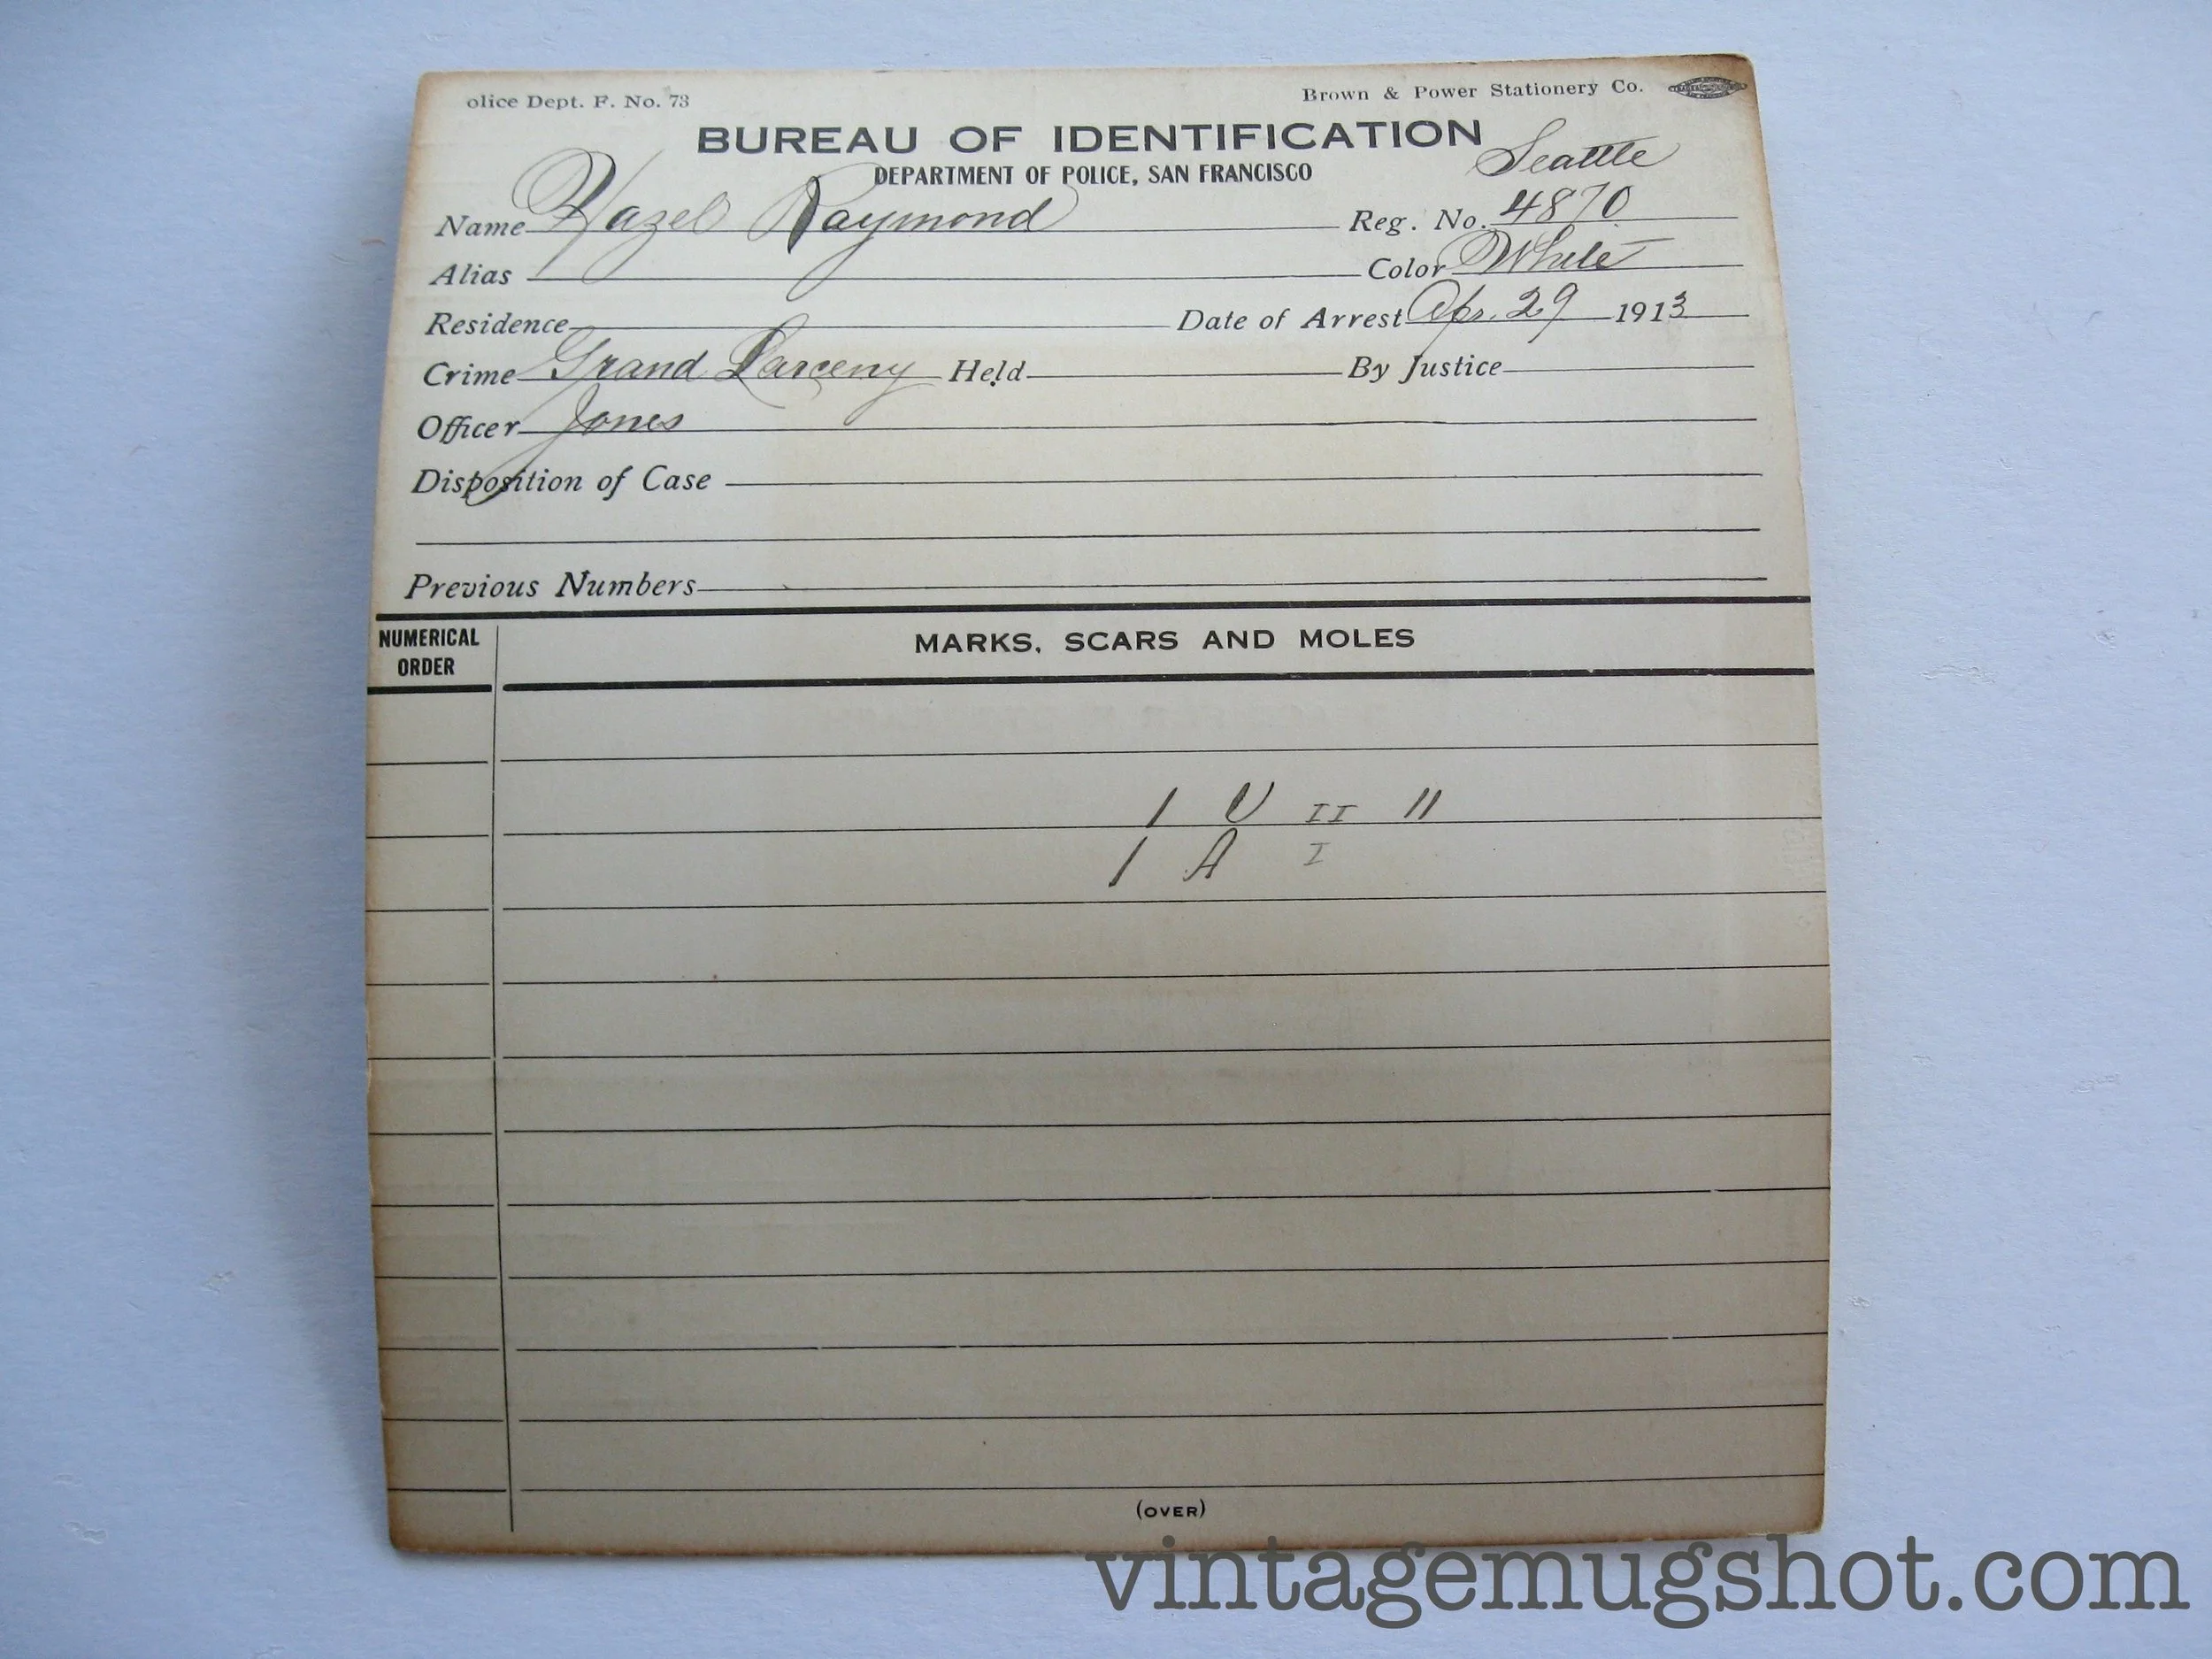 olice Dept. F. No. 73 Brown & Power Stationery Co.
BUREAU OF IDENTIFICATION
Seattle
DEPARTMENT OF POLICE, SAN FRANCISCO
Name Hazel Raymond Reg. No. 4870
Alias Color White
Residence Date of Arrest Apr. 29 1913
Crime Grand Larceny Held By Justice
Officer Jones
Disposition of Case
Previous Numbers
NUMERICAL ORDER MARKS, SCARS AND MOLES
1 U II 11
1 A I
(OVER)
vintagemugshot.com